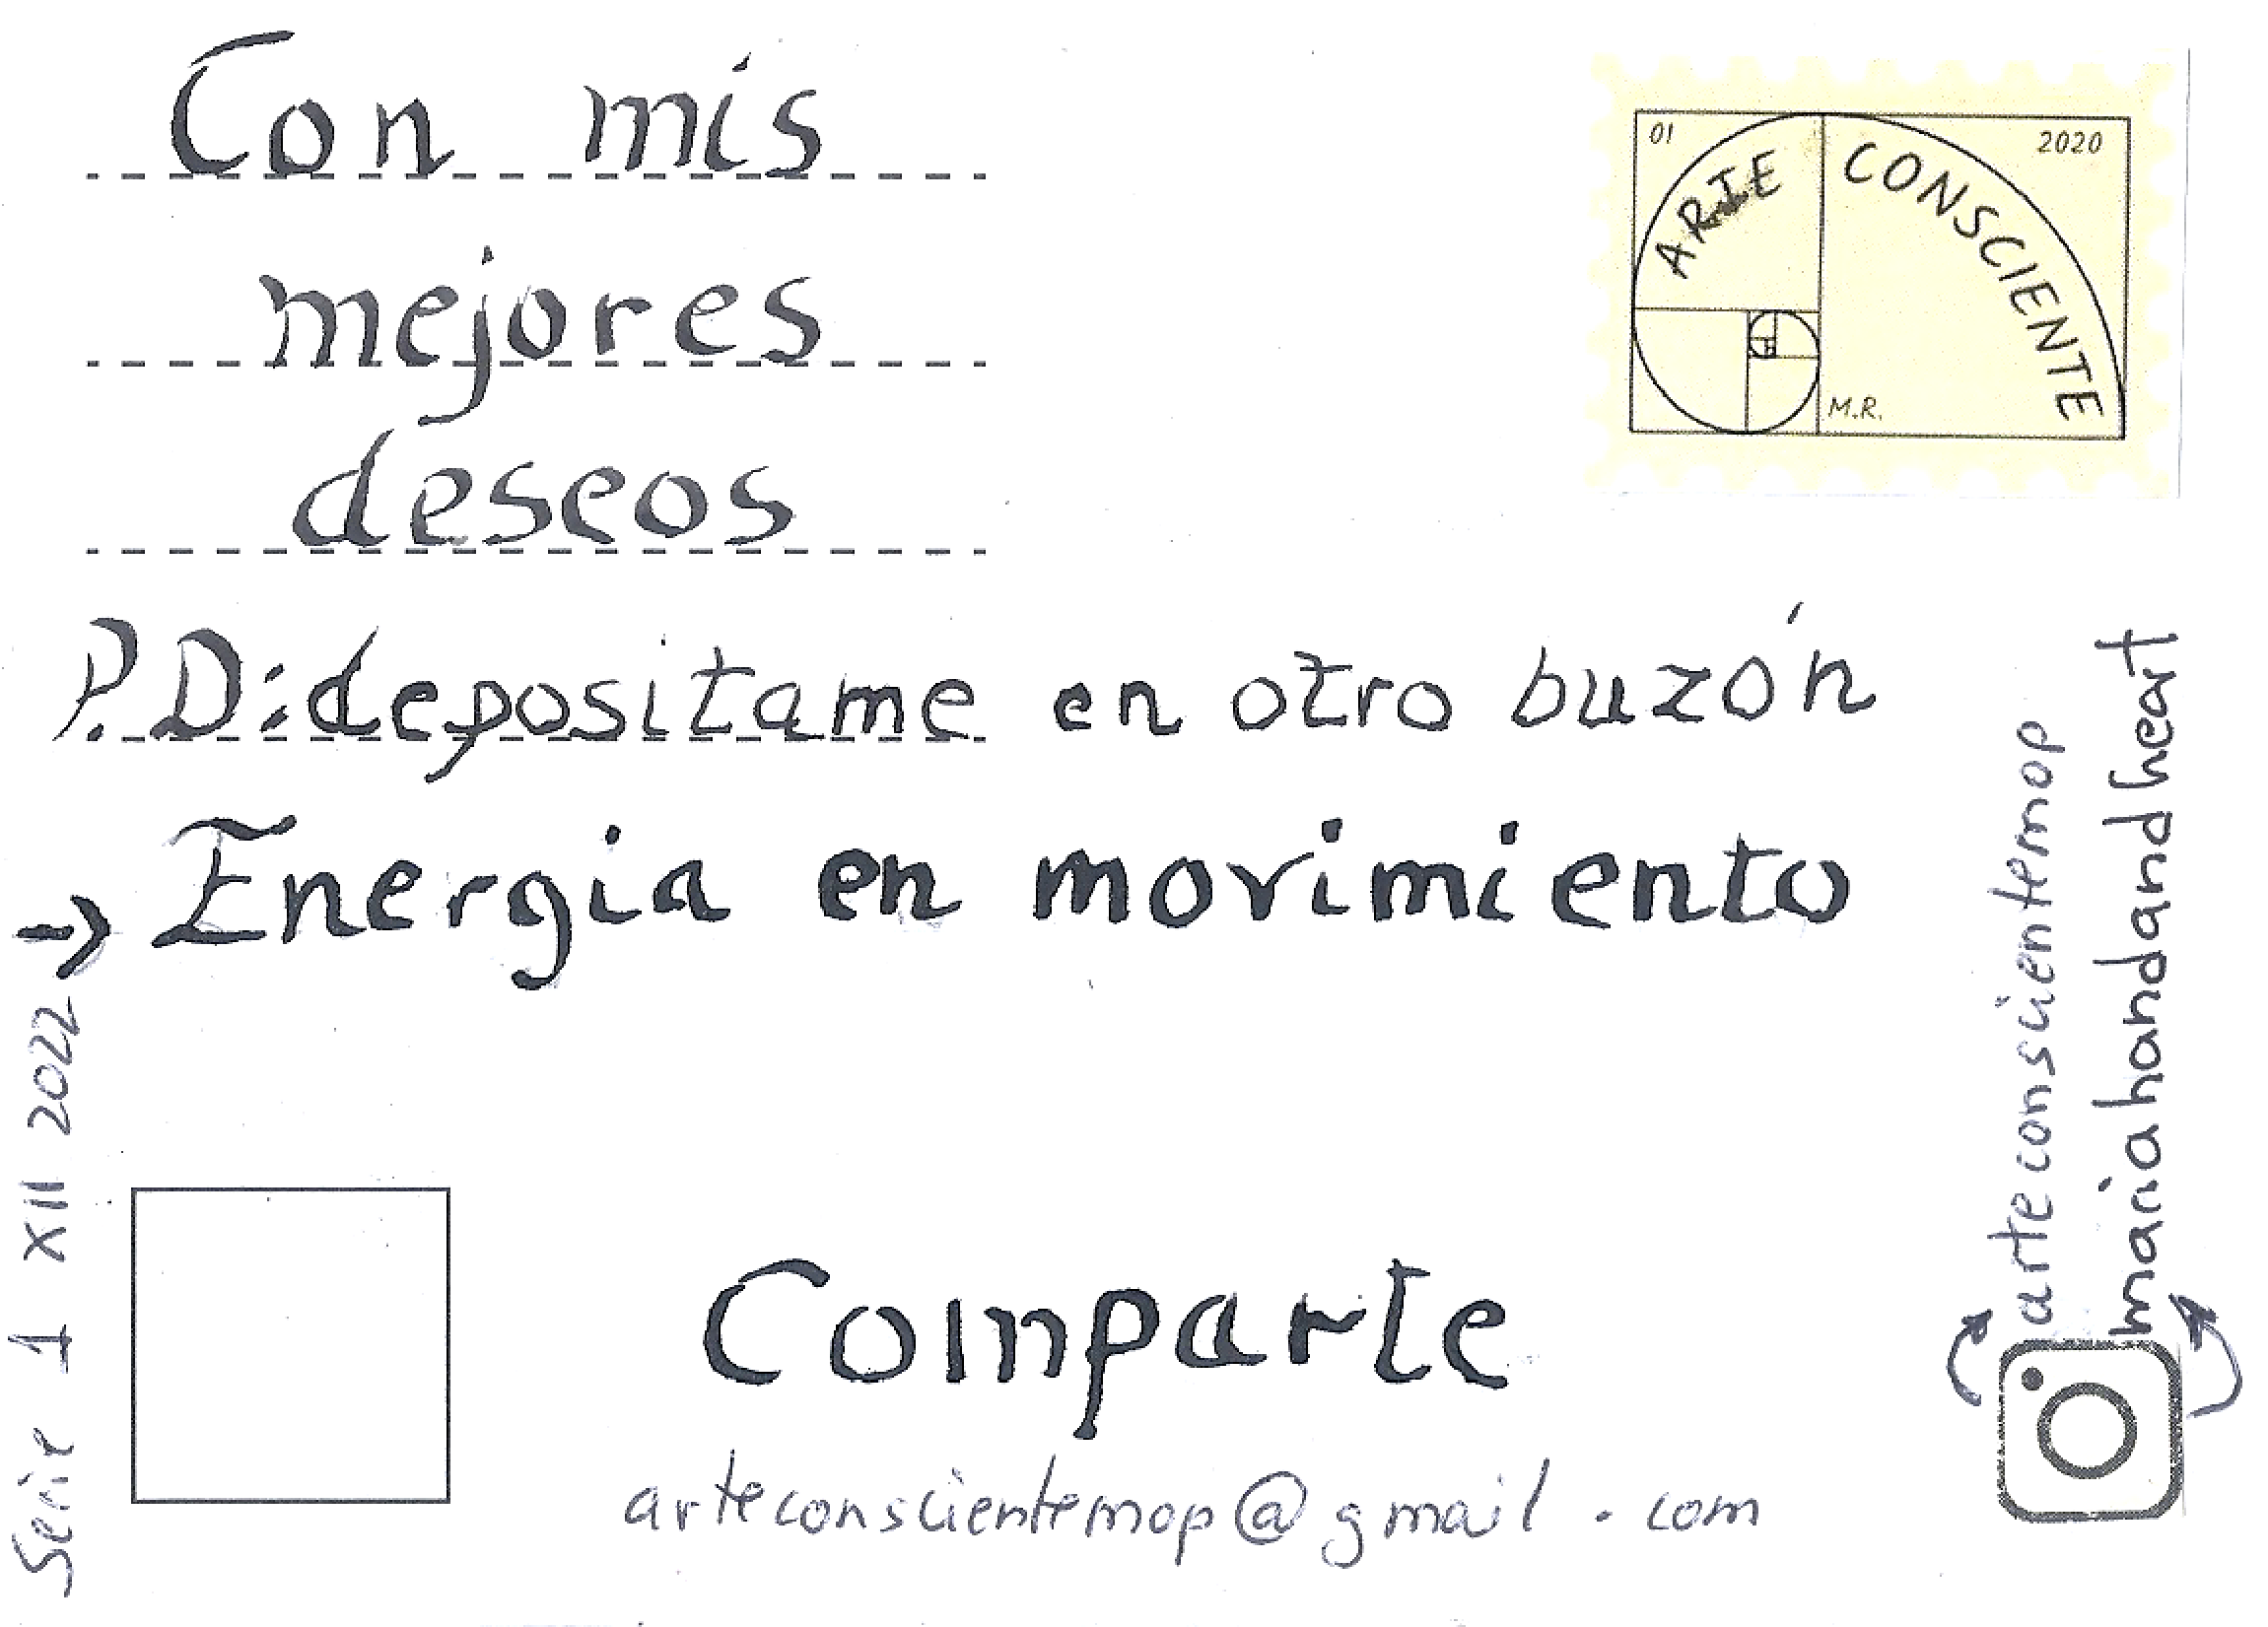 Con mis
mejores
deseos
P.D:depositame en otro buzón
→ Energia en movimiento
Comparte
arteconscientemop@gmail.com
Serie 1 XII 2022
01
2020
ARTE CONSCIENTE
M.R.
arteconscientemop
mariahandandheart